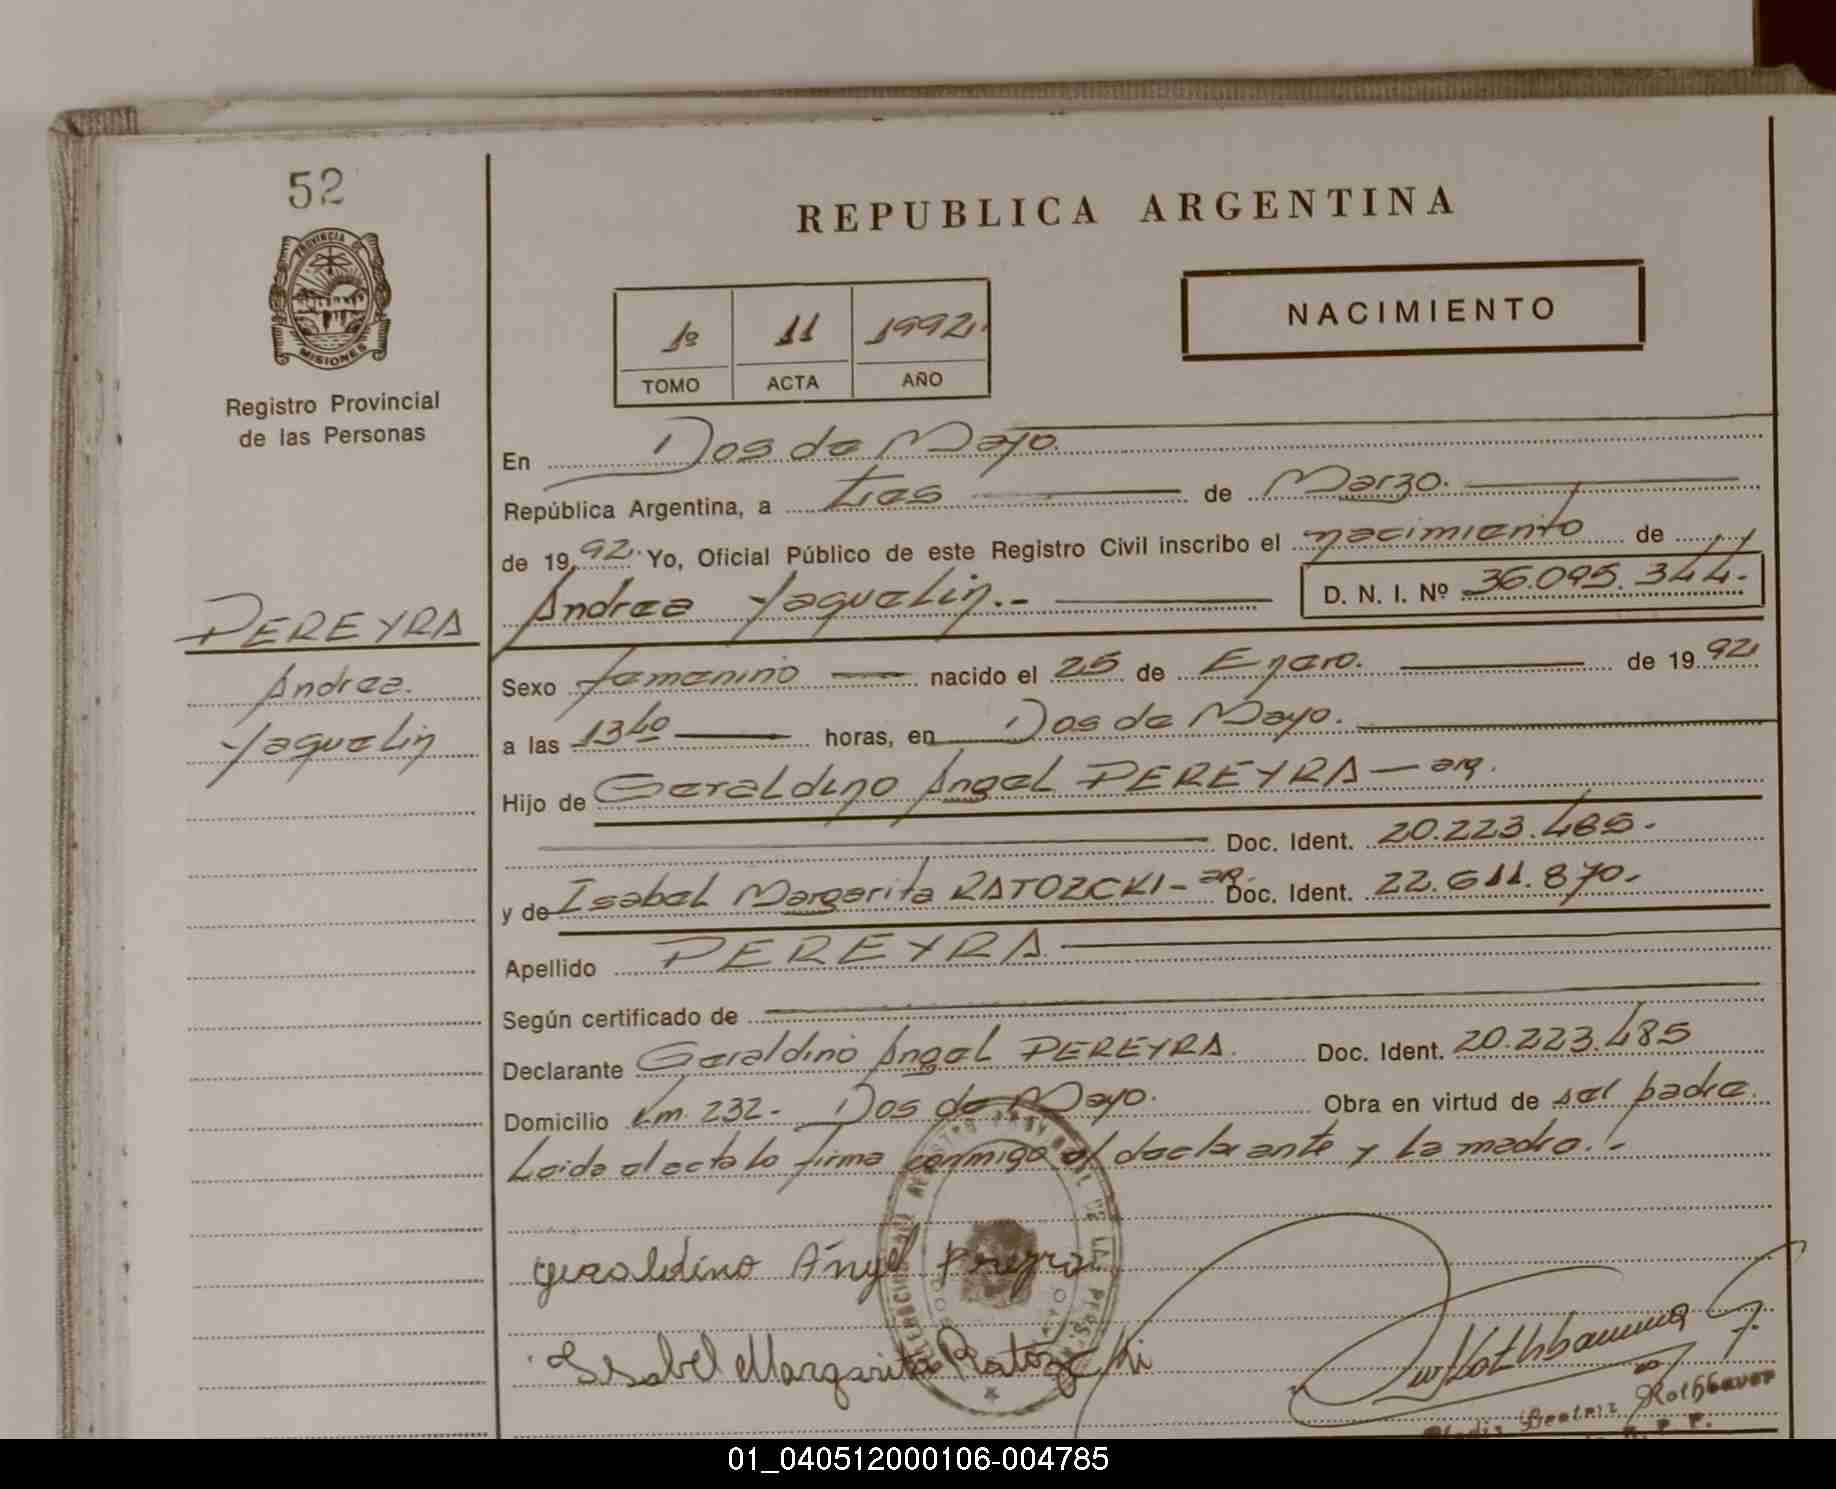 52
PROVINCIA DE
MISIONES
Registro Provincial
de las Personas
PEREYRA
Andrea.
Yaquelin
REPUBLICA ARGENTINA
1º 11 1992.
TOMO ACTA AÑO
NACIMIENTO
En Dos de Mayo.
República Argentina, a tres de Marzo.
de 1992. Yo, Oficial Público de este Registro Civil inscribo el nacimiento de
Andrea Yaquelin.- D. N. I. Nº 36.095.344.-
Sexo femenino nacido el 25 de Enero. de 1992
a las 13 40 horas, en Dos de Mayo.
Hijo de Geraldino Angel PEREYRA — arg.
Doc. Ident. 20.223.485.-
y de Isabel Margarita RATOZCKI - ar. Doc. Ident. 22.611.870.-
Apellido PEREYRA
Según certificado de
Declarante Geraldino Angel PEREYRA. Doc. Ident. 20.223.485
Domicilio Km. 232- Dos de Mayo. Obra en virtud de ser padre.
Leida el acta lo firma conmigo el declarante y la madre.-
Geraldino Ángel Pereyra
Isabel Margarita Ratozcki
Beatriz Rothbauer
01_040512000106-004785